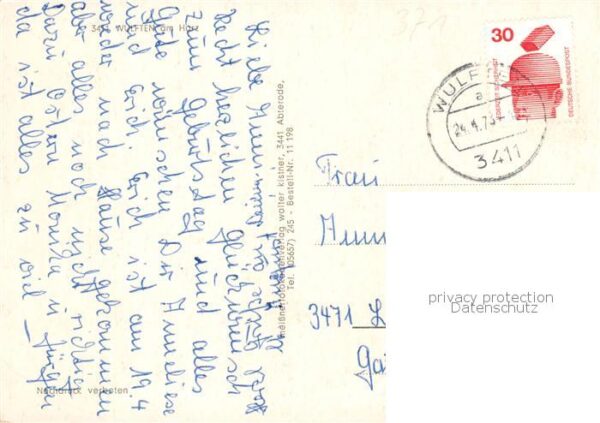 3411 WULFTEN am Harz
Liebe Annemarie
Recht herzlichen Glückwunsch
zum Geburtstag und alles
Gute wünschen Dir Anneliese
und Erich. Erich ist am 19.4
wieder nach Hause gekommen
aber alles noch nicht richtig
Dazu Ostern Monika u. Jürgen
da ist alles zu viel
meißner-fotokartenverlag walter kistner, 3441 Abterode,
Tel. (05657) 245 - Bestell-Nr. 11 198
Nachdruck verboten
371
30
DEUTSCHE BUNDESPOST
WULFTEN
a
24.4.73
3411
Frau
3471
privacy protection
Datenschutz